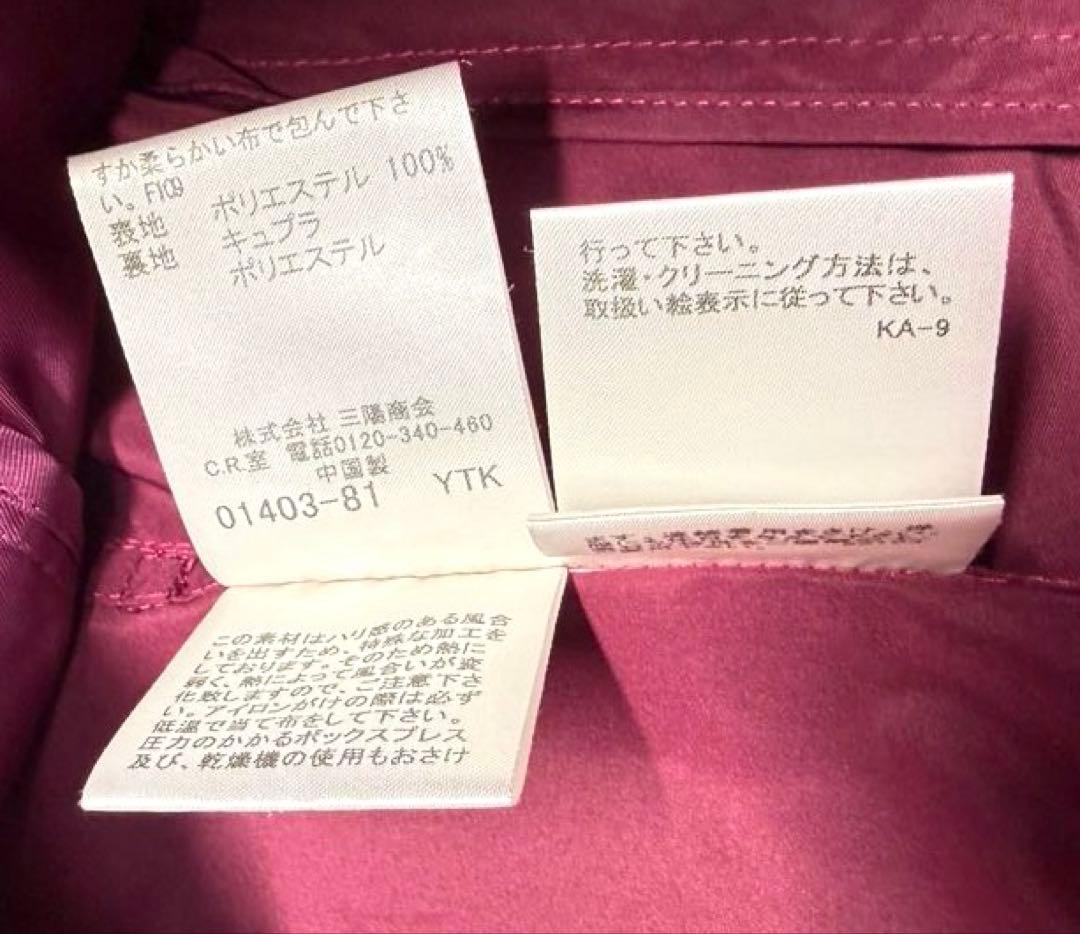 すか柔らかい布で包んで下さ
い。F109
表地 ポリエステル 100%
裏地 キュプラ
ポリエステル
株式会社 三陽商会
C.R.室 電話0120-340-460
中国製
01403-81 YTK
行って下さい。
洗濯・クリーニング方法は、
取扱い絵表示に従って下さい。
KA-9
この素材はハリ感のある風合
いを出すため、特殊な加工を
しております。そのため熱に
弱く、熱によって風合いが変
化致しますので、ご注意下さ
い。アイロンがけの際は必ず
低温で当て布をして下さい。
圧力のかかるボックスプレス
及び、乾燥機の使用もおさけ